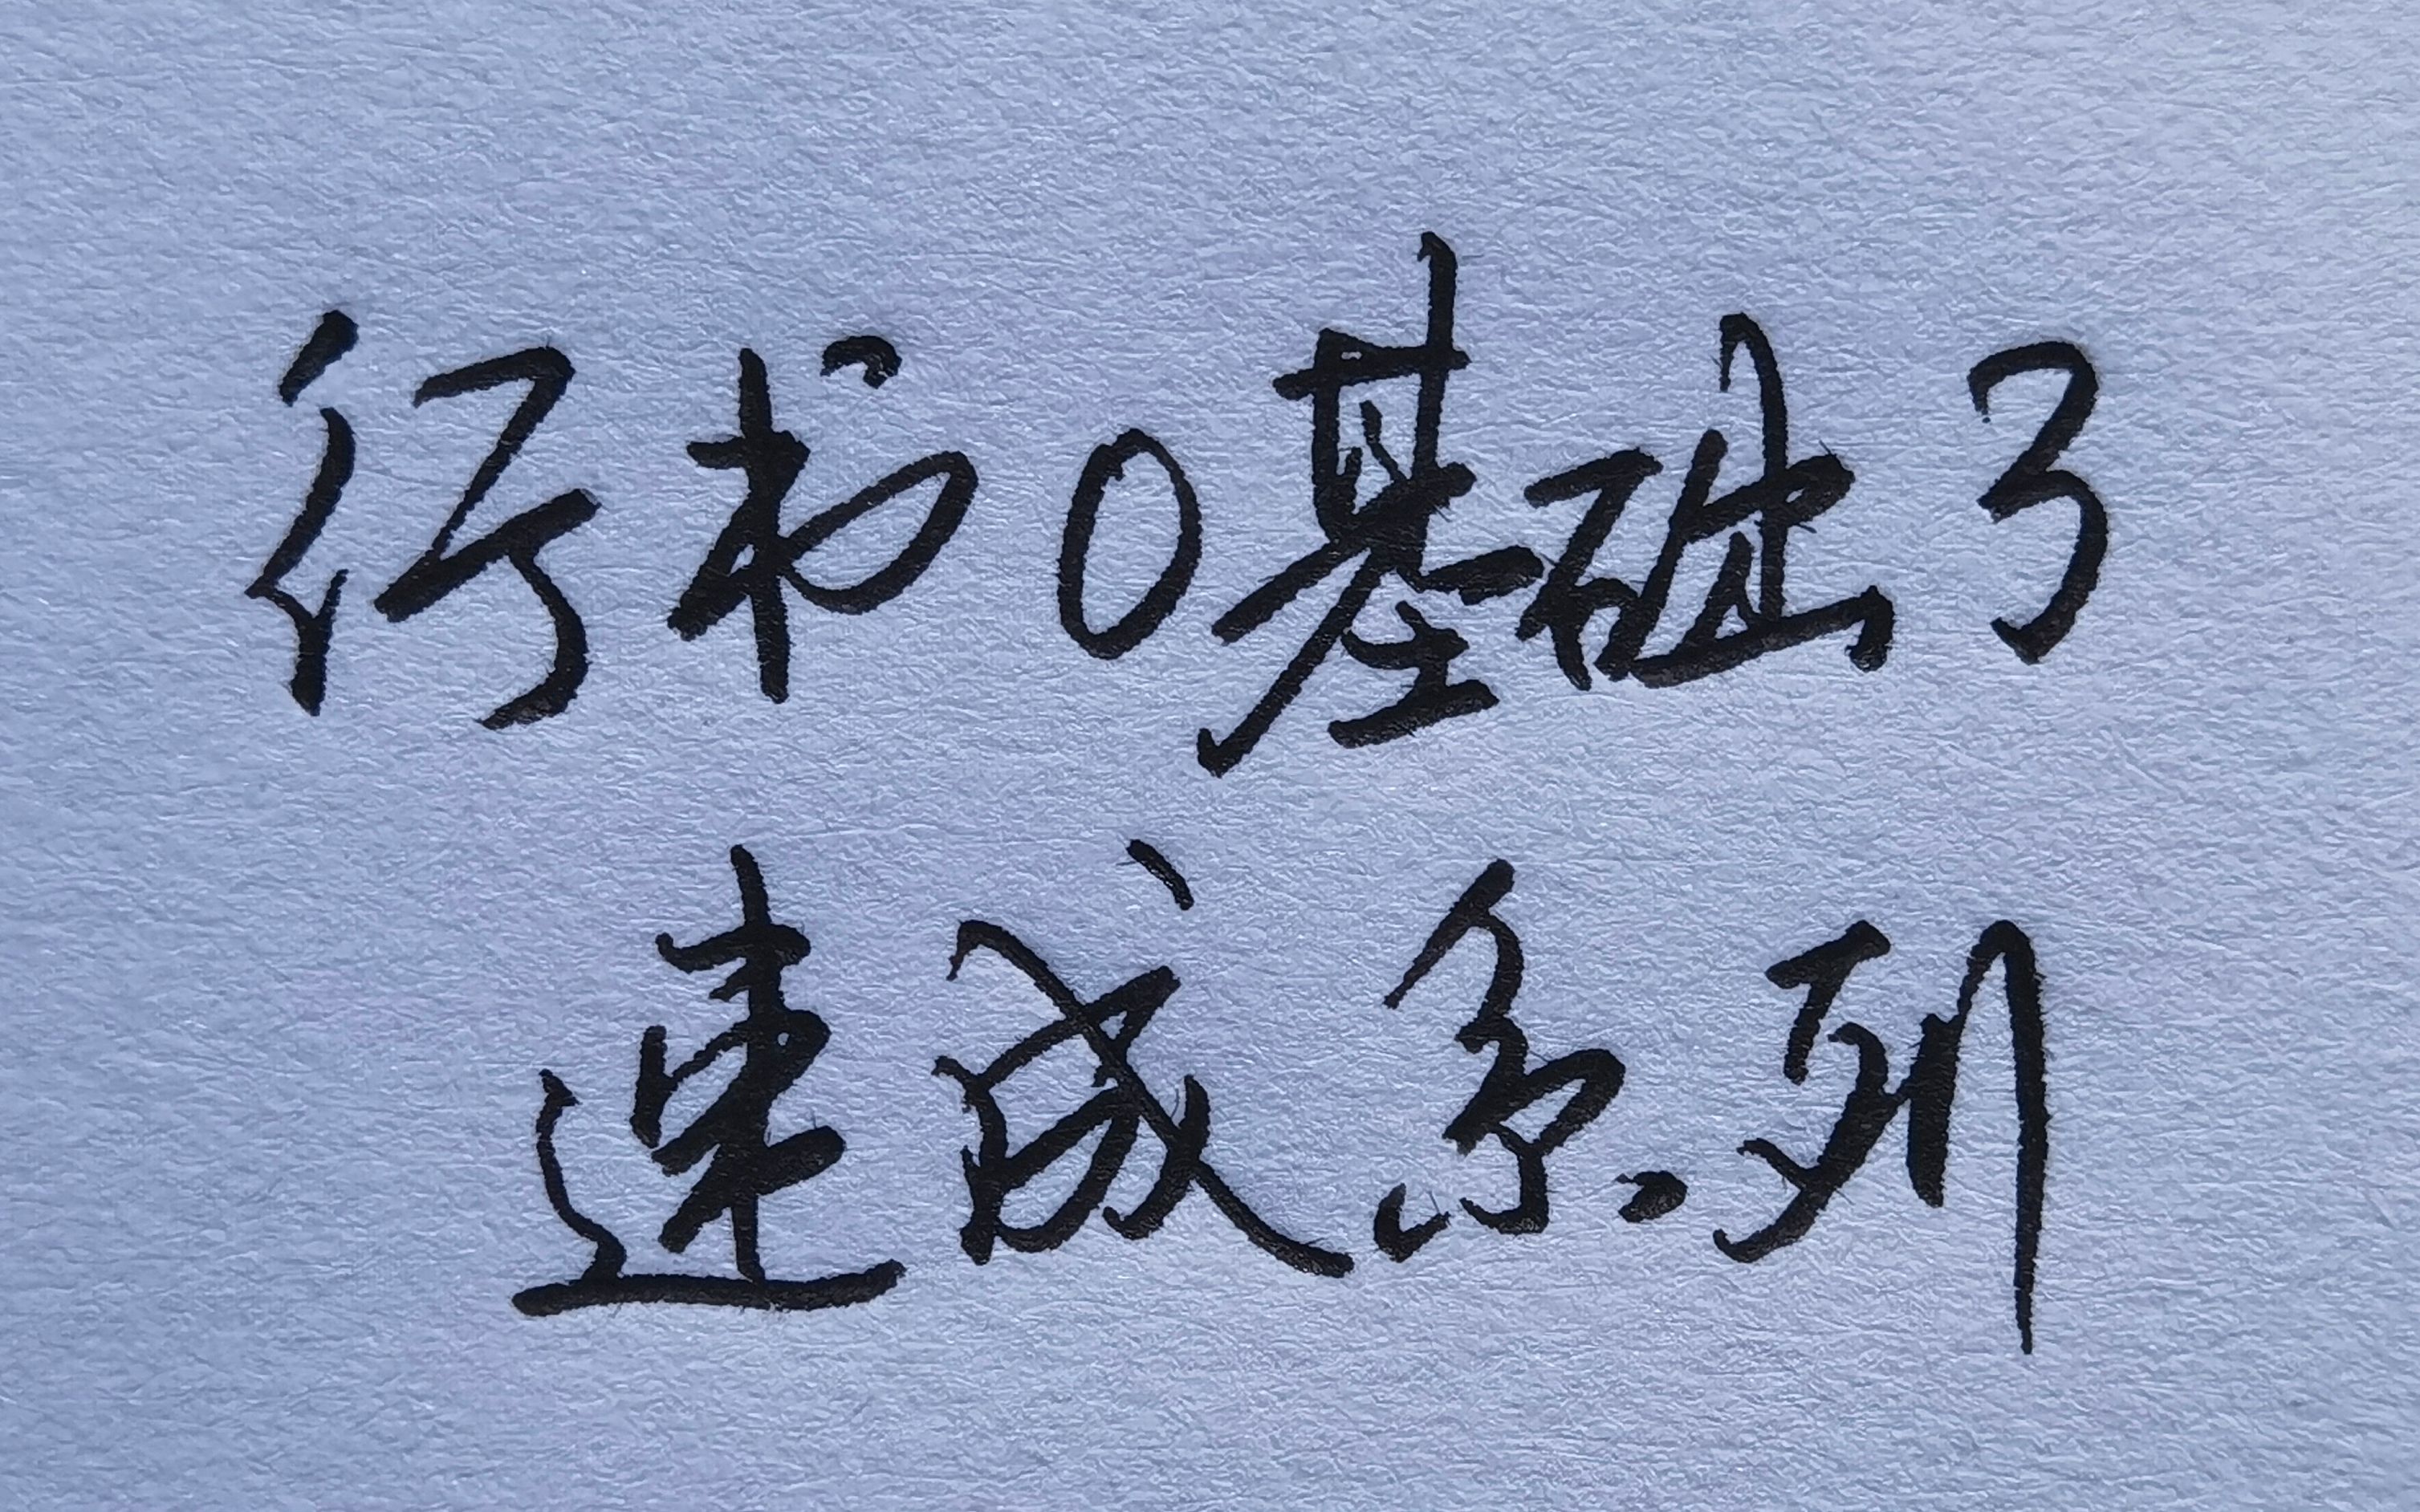 行书0基础3
速成系列